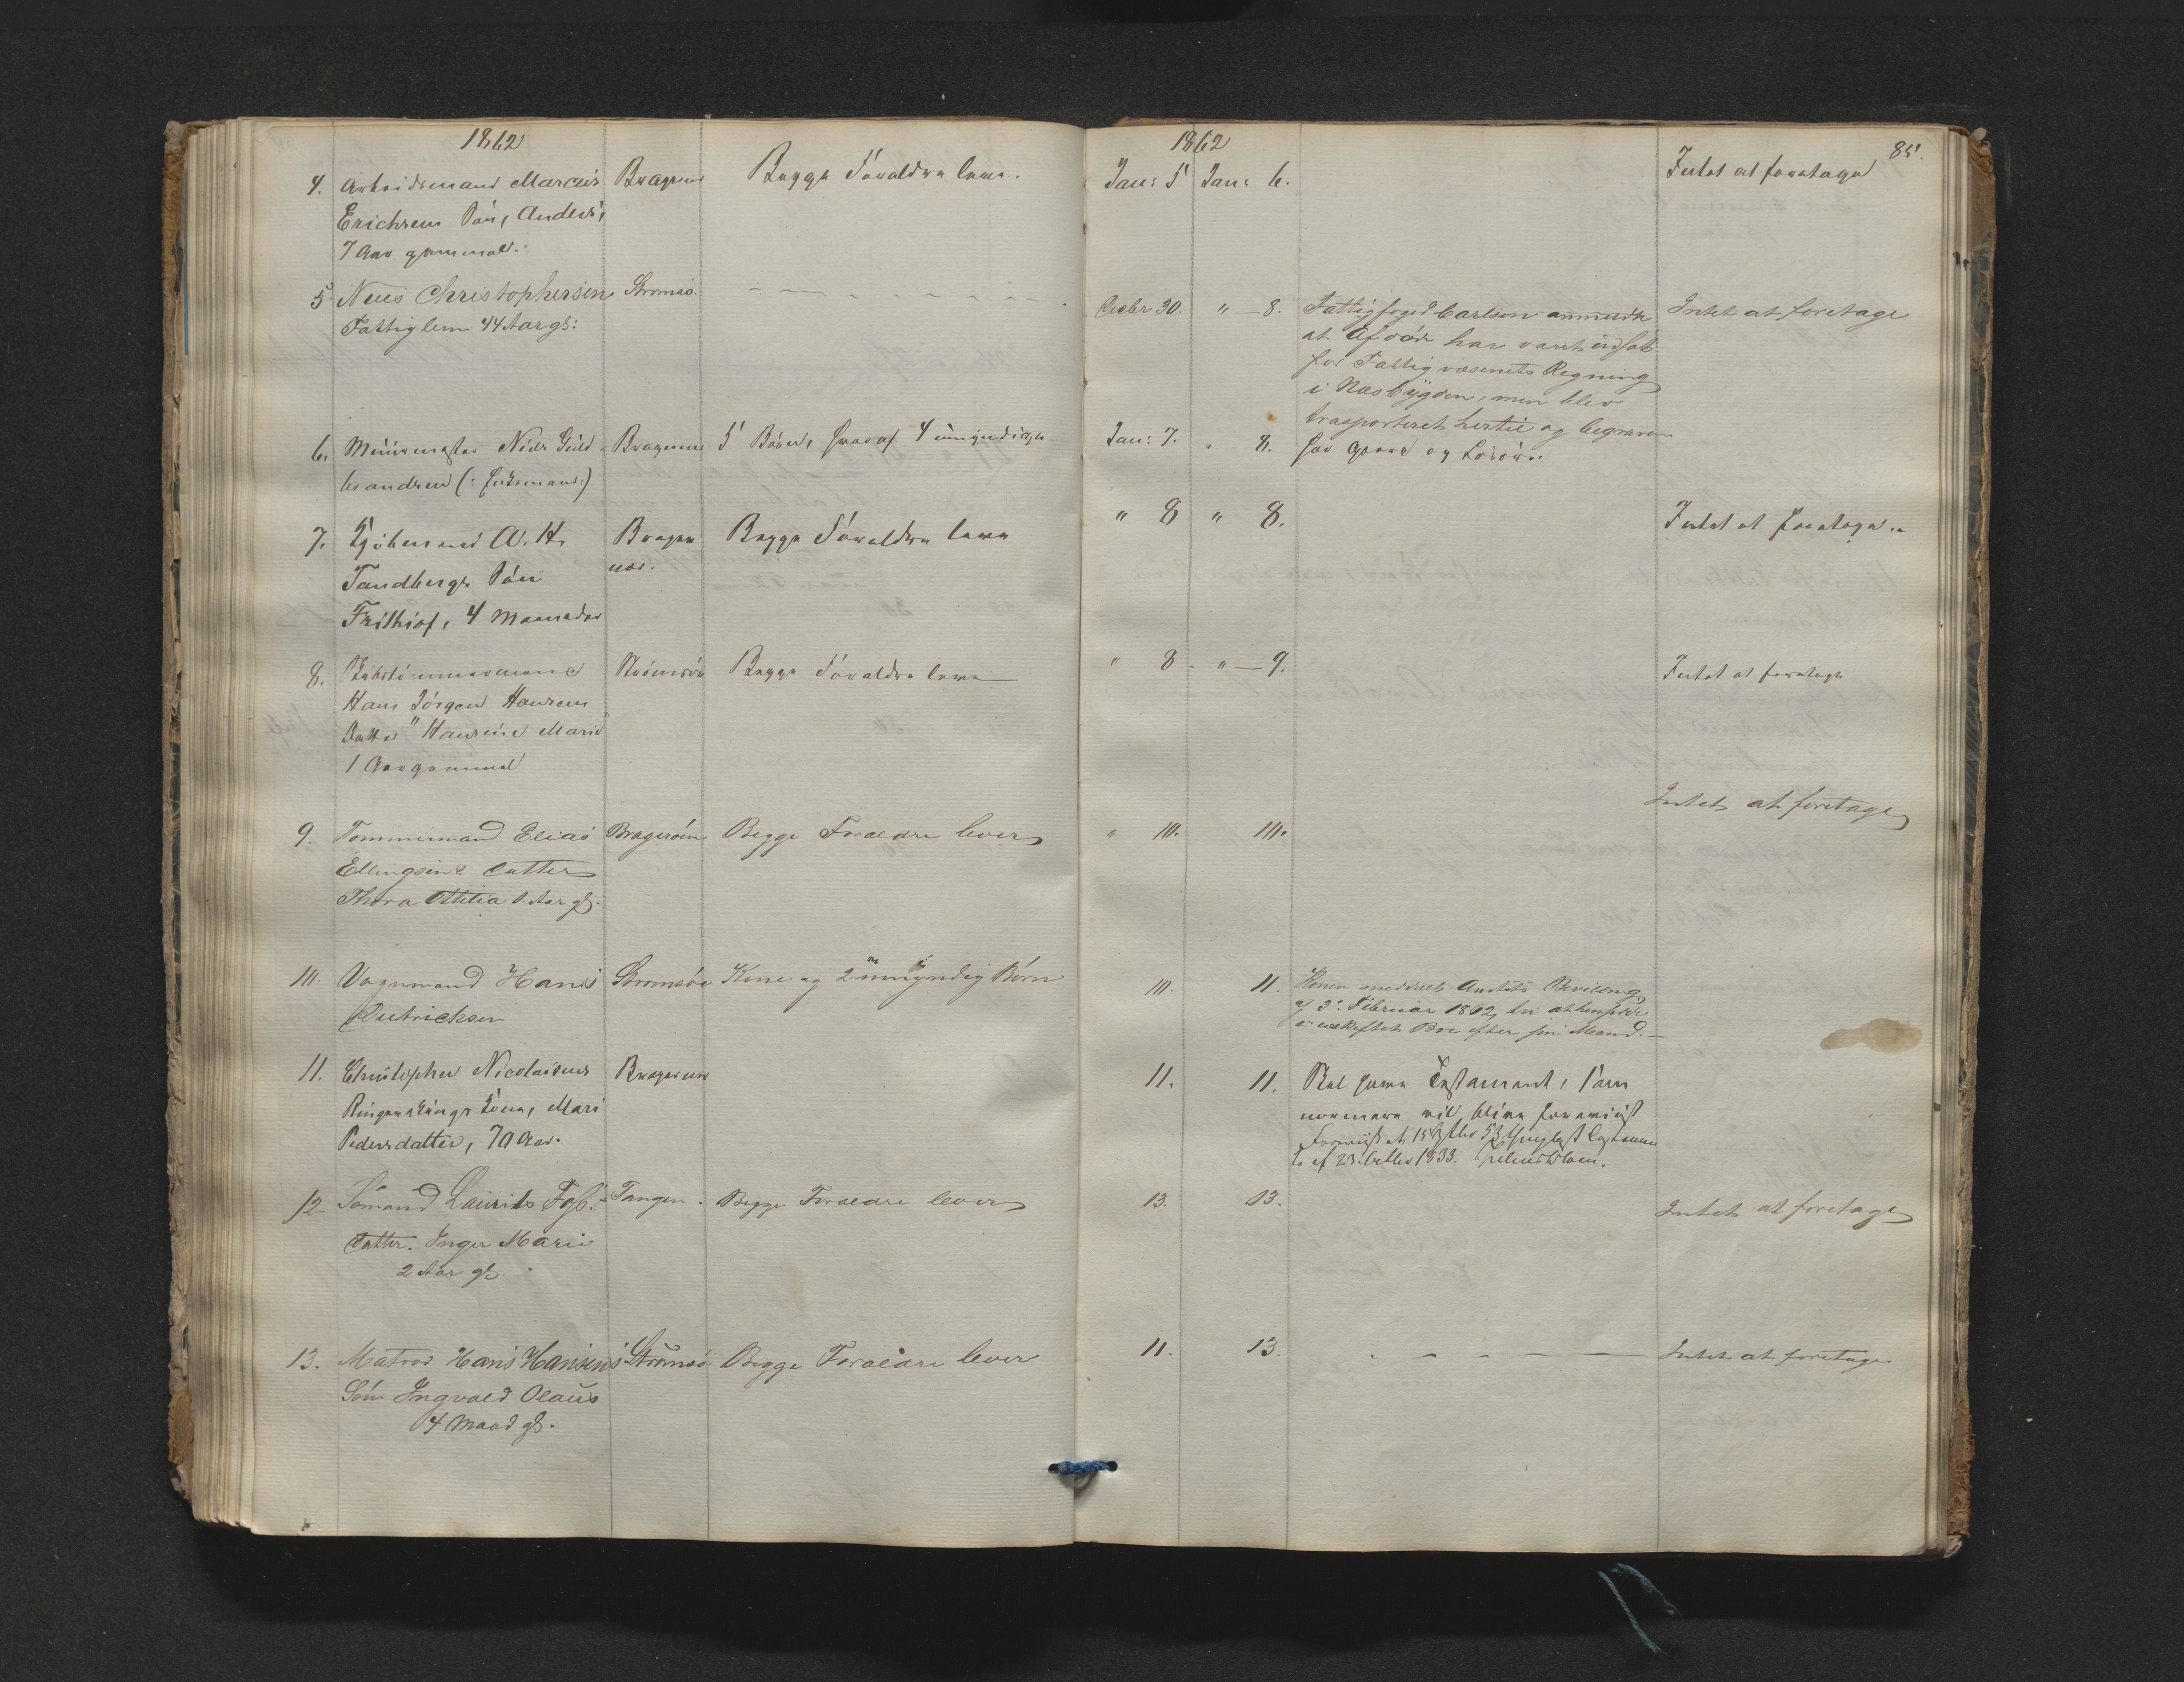 1862
4. Arbeidsmand Marcus Bragernes Begge Forældre leve.
Erichsens Søn, Anders,
7 Aar gammel.
5 Niels Christophersen Strømsø.
Fattiglem 44 Aar gl:
6. Muurmester Niels Guld- Bragernes 5 Børn, hvoraf 4 umyndige
brandsen (: Enkemand :)
7. Kjøbmand A. H. Brager Begge Forældre leve
Tandbergs Søn nes.
Frithiof, 4 Maaneder
8. Skibstømmermand Strømsø Begge Forældre leve
Hans Jørgen Hansens
Datter "Hansine Marie"
1 Aar gammel
9. Tømmermand Elias Bragerøen Begge Forældre lever
Ellingsens Datter
Thora Ottilia 1 Aar gl.
10. Vognmand Hans Strømsøe Kone og 2 umyndig Børn
Dietrichsen
11. Christopher Nicolaisens Bragernes
Ringerikings Kone, Mari
Pedersdatter, 70 Aar.
12 Sømand Laurits Foss: Tangen. Begge Forældre lever
Datter. Inger Marie
2 Aar gl.
13. Matros Hans Hansens Strømsø Begge Forældre lever
Søn Ingvald Olaus
4 Maad gl.
1862
85.
Jan: 5 Jan: 6. Intet at foretage
Decbr 30. " 8. Fattigfoged Carlson anmeldte Intet at foretage
at Afdøde har været indsat
for Fattigvæsenets Regning
i Næsbygden, men blev
trasporteret hertil og begraven
Jan: 7. " 8. har Gaard og Løsøre.
" 8 " 8. Intet at foretage.
" 8 - " 9. Intet at foretage
Intet at foretage
" 10. 10.
10. 11. Konen meddelt Amtets Bevilling
af 3: Februar 1862, til at hensidde
i uskiftet Boe efter sin Mand.
11. 11. Skal have Testament, som
nærmere vil blive foreviist
Foreviist et 15 thinglyst Testamen
te af 23 1833.
13. 13. Intet at foretage
11. 13. Intet at foretage